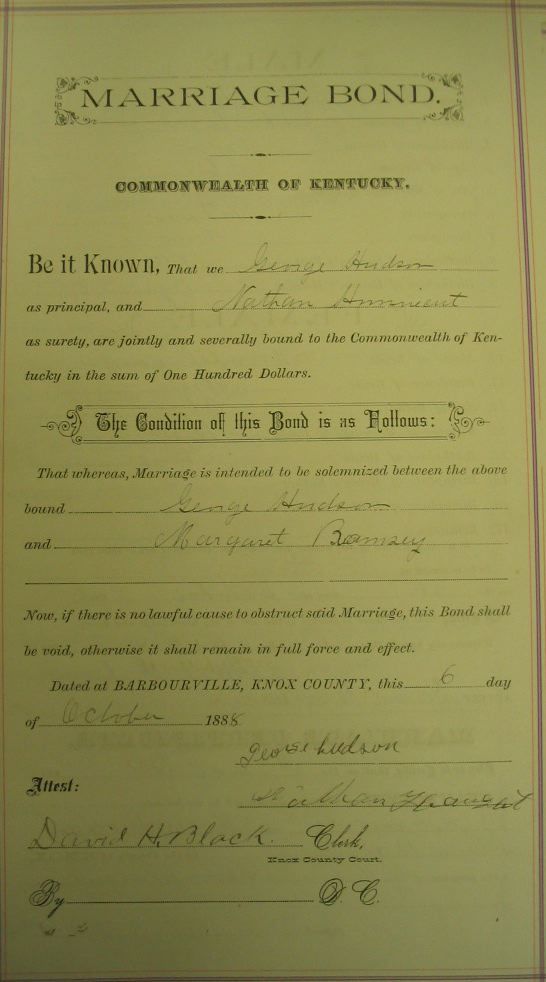 MARRIAGE BOND.
COMMONWEALTH OF KENTUCKY.
Be it Known, That we George Hudson
as principal, and Nathan Hunnicut
as surety, are jointly and severally bound to the Commonwealth of Ken-
tucky in the sum of One Hundred Dollars.
The Condition of this Bond is as Follows:
That whereas, Marriage is intended to be solemnized between the above
bound George Hudson
and Margaret Ramsey
Now, if there is no lawful cause to obstruct said Marriage, this Bond shall
be void, otherwise it shall remain in full force and effect.
Dated at BARBOURVILLE, KNOX COUNTY, this 6 day
of October 1888
George hudson
Attest:
Nathan
David H. Black. Clerk,
Knox County Court.
By D. C.